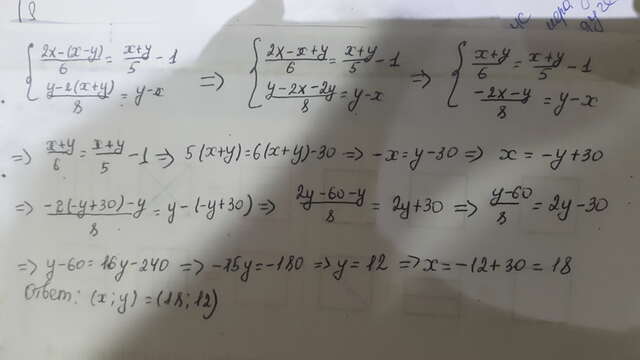 { (2x-(x-y))/6 = (x+y)/5 - 1 => { (2x-x+y)/6 = (x+y)/5 - 1 => { (x+y)/6 = (x+y)/5 - 1
(y-2(x+y))/8 = y-x (y-2x-2y)/8 = y-x (-2x-y)/8 = y-x
=> (x+y)/6 = (x+y)/5 - 1 => 5(x+y)=6(x+y)-30 => -x=y-30 => x=-y+30
=> (-2(-y+30)-y)/8 = y-(-y+30) => (2y-60-y)/8 = 2y+30 => (y-60)/8 = 2y-30
=> y-60=16y-240 => -15y=-180 => y=12 => x=-12+30=18
Ответ: (x;y)=(18;12)